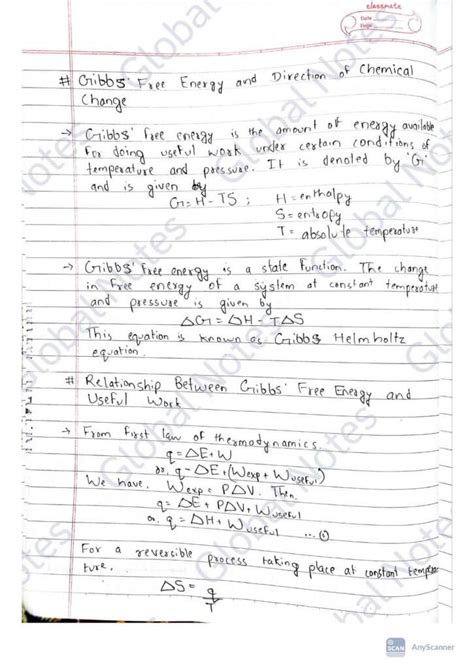 classmate
Date
Page
# Gibbs' Free Energy and Direction of Chemical
Change
→ Gibbs' free energy is the amount of energy available
for doing useful work under certain conditions of
temperature and pressure. It is denoted by 'G'
and is given by
G = H - TS ; H = enthalpy
S = entropy
T = absolute temperature
→ Gibbs' free energy is a state function. The change
in free energy of a system at constant temperature
and pressure is given by
△G = △H - T△S
This equation is known as Gibbs Helmholtz
equation.
# Relationship Between Gibbs' Free Energy and
Useful Work
→ From first law of thermodynamics.
q = △E + W
or, q = △E + (Wexp + Wuseful)
We have. Wexp = P△V. Then,
q = △E + P△V + Wuseful
or, q = △H + Wuseful ... ①
For a reversible process taking place at constant tempera
ture.
△S = q
T
Global Notes
Global Notes
Global Notes
Global Notes
SCAN
AnyScanner